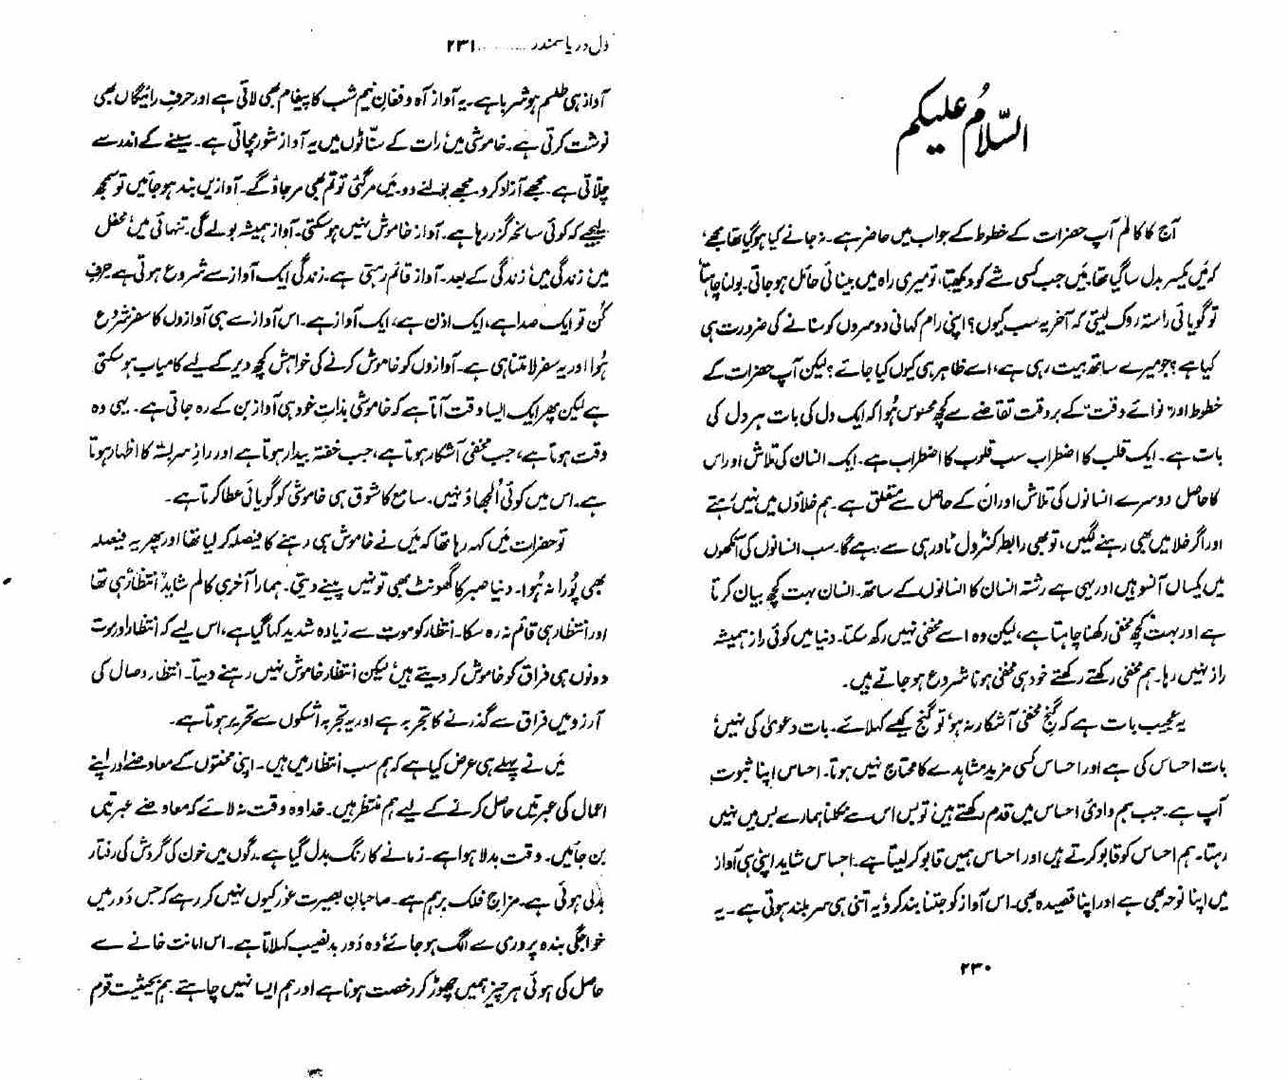 السّلامُ علیکم
آج کا کالم آپ حضرات کے خطوط کے جواب میں حاضر ہے۔ نہ جانے کیا ہو گیا تھا مجھے،
کہ مَیں یکسر بدل سا گیا تھا۔ مَیں جب کسی شے کو دیکھتا، تو میری راہ میں بینائی حائل ہو جاتی۔ بولنا چاہتا
تو گویائی راستہ روک لیتی کہ آخر یہ سب کیوں؟ اپنی رام کہانی دوسروں کو سنانے کی ضرورت ہی
کیا ہے؟ جو میرے ساتھ بیت رہی ہے، اسے ظاہر ہی کیوں کیا جائے؟ لیکن آپ حضرات کے
خطوط اور "نوائے وقت" کے بروقت تقاضے سے کچھ محسوس ہُوا کہ ایک دل کی بات ہر دل کی
بات ہے۔ ایک قلب کا اضطراب سب قلوب کا اضطراب ہے۔ ایک انسان کی تلاش اور اس
کا حاصل دوسرے انسانوں کی تلاش اور ان کے حاصل سے متعلق ہے۔ ہم خلاؤں میں نہیں رہتے
اور اگر خلا میں بھی رہنے لگیں، تو بھی رابطہ کنٹرول ٹاور ہی سے رہے گا۔ سب انسانوں کی آنکھوں
میں یکساں آنسو ہیں اور یہی ہے رشتہ انسان کا انسانوں کے ساتھ۔ انسان بہت کچھ بیان کرتا
ہے اور بہت کچھ مخفی رکھنا چاہتا ہے، لیکن وہ اسے مخفی نہیں رکھ سکتا۔ دنیا میں کوئی راز ہمیشہ
راز نہیں رہا۔ ہم مخفی رکھتے رکھتے خود ہی مخفی ہونا شروع ہو جاتے ہیں۔
یہ عجیب بات ہے کہ گنجِ مخفی آشکار نہ ہو تو گنج کیسے کہلائے۔ بات دعویٰ کی نہیں
بات احساس کی ہے اور احساس کسی مزید مشاہدے کا محتاج نہیں ہوتا۔ احساس اپنا ثبوت
آپ ہے۔ جب ہم وادیٔ احساس میں قدم رکھتے ہیں تو بس اس سے نکلنا ہمارے بس میں نہیں
رہتا۔ ہم احساس کو قابو کرتے ہیں اور احساس ہمیں قابو کر لیتا ہے۔ احساس شاید اپنی ہی آواز
میں اپنا نوحہ بھی ہے اور اپنا قصیدہ بھی۔ اس آواز کو جتنا بند کرو یہ اتنی ہی سر بلند ہوتی ہے۔ یہ
۲۳۰
دل دریا سمندر ......... ۲۳۱
آواز ہی طلسم ہوشربا ہے۔ یہ آواز آہ و فغانِ نیم شب کا پیغام بھی لاتی ہے اور حرفِ رائیگاں بھی
نوشت کرتی ہے۔ خاموشی میں رات کے سنّاٹوں میں یہ آواز شور مچاتی ہے۔ سینے کے اندر سے
چلاّتی ہے۔ مجھے آزاد کرو۔ مجھے بولنے دو۔ مَیں مر گئی تو تم بھی مر جاؤ گے۔ آوازیں بند ہو جائیں تو سمجھ
لیجیے کہ کوئی سانحہ گزر رہا ہے۔ آواز خاموش نہیں ہو سکتی۔ آواز ہمیشہ بولے گی۔ تنہائی میں، محفل
میں، زندگی میں، زندگی کے بعد۔ آواز قائم رہتی ہے۔ زندگی ایک آواز سے شروع ہوتی ہے حرفِ
کُن تو ایک صدا ہے، ایک اذن ہے، ایک آواز ہے۔ اس آواز سے ہی آوازوں کا سفر شروع
ہُوا اور یہ سفر لامتناہی ہے۔ آوازوں کو خاموش کرنے کی خواہش کچھ دیر کے لیے کامیاب ہو سکتی
ہے لیکن پھر ایک ایسا وقت آتا ہے کہ خاموشی بذاتِ خود ہی آواز بن کے رہ جاتی ہے۔ یہی وہ
وقت ہوتا ہے، جب مخفی آشکار ہوتا ہے، جب خفتہ بیدار ہوتا ہے اور رازِ سربستہ کا اظہار ہوتا
ہے۔ اس میں کوئی اُلجھاؤ نہیں۔ سامع کا شوق ہی خاموشی کو گویائی عطا کرتا ہے۔
تو حضرات مَیں کہہ رہا تھا کہ مَیں نے خاموش ہی رہنے کا فیصلہ کر لیا تھا اور پھر یہ فیصلہ
بھی پُورا نہ ہُوا۔ دنیا صبر کا گھونٹ بھی تو نہیں پینے دیتی۔ ہمارا آخری کالم شاید "انتظار" ہی تھا
اور انتظار ہی قائم نہ رہ سکا۔ انتظار کو موت سے زیادہ شدید کہا گیا ہے، اس لیے کہ انتظار اور موت
دونوں ہی فراق کو خاموش کر دیتے ہیں، لیکن انتظار خاموش نہیں رہنے دیتا۔ انتظار وصال کی
آرزو میں فراق سے گذرنے کا تجربہ ہے اور یہ تجربہ اشکوں سے تحریر ہوتا ہے۔
مَیں نے پہلے ہی عرض کیا ہے کہ ہم سب انتظار میں ہیں۔ اپنی محنتوں کے معاوضے اور اپنے
اعمال کی عبرتیں حاصل کرنے کے لیے ہم منتظر ہیں۔ خدا وہ وقت نہ لائے کہ معاوضے عبرتیں
بن جائیں۔ وقت بدلا ہوا ہے۔ زمانے کا رنگ بدل گیا ہے۔ رگوں میں خون کی گردش کی رفتار
بدلی ہوئی ہے۔ مزاجِ فلک برہم ہے۔ صاحبانِ بصیرت غور کیوں نہیں کر رہے کہ جس دَور میں
خواجگی بندہ پروری سے الگ ہو جائے، وہ دَور بدنصیب کہلاتا ہے۔ اس امانت خانے سے
حاصل کی ہوئی ہر چیز ہمیں چھوڑ کر رخصت ہونا ہے اور ہم ایسا نہیں چاہتے۔ ہم بحیثیت قوم